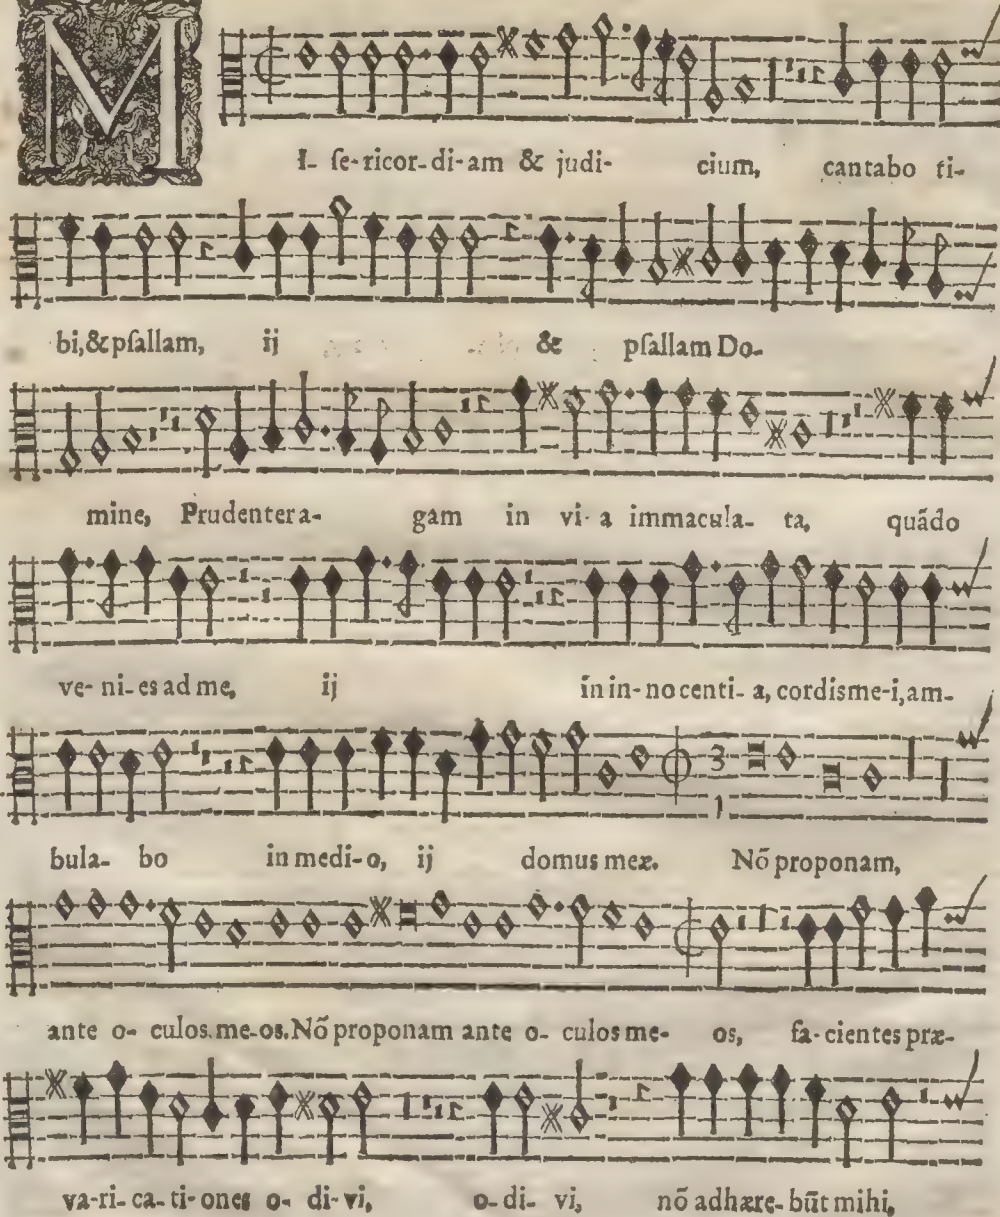 MI- ſe-ricor-di-am & judi- cium, cantabo ti-
bi,&pſallam, ij & pſallam Do-
mine, Prudenter a- gam in vi-a immacula- ta, quãdo
ve-ni-es ad me, ij in in-nocenti-a, cordis me-i, am-
bula- bo in medi-o, ij domus meæ. Nõ proponam,
ante o- culos me-os. Nõ proponam ante o- culos me- os, fa-cientes præ-
va-ri-ca-ti-ones o- di-vi, o-di- vi, nõ adhære-bũt mihi,